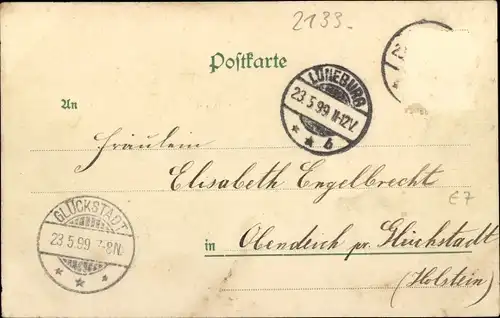 2133.
Postkarte
LÜNEBURG
23.5.99 11-12V.
* * b
An
Fräulein
Elisabeth Engelbrecht
E7
GLÜCKSTADT
23.5.99 7-8N.
* * *
in Obendeich pr. Glückstadt
(Holstein)